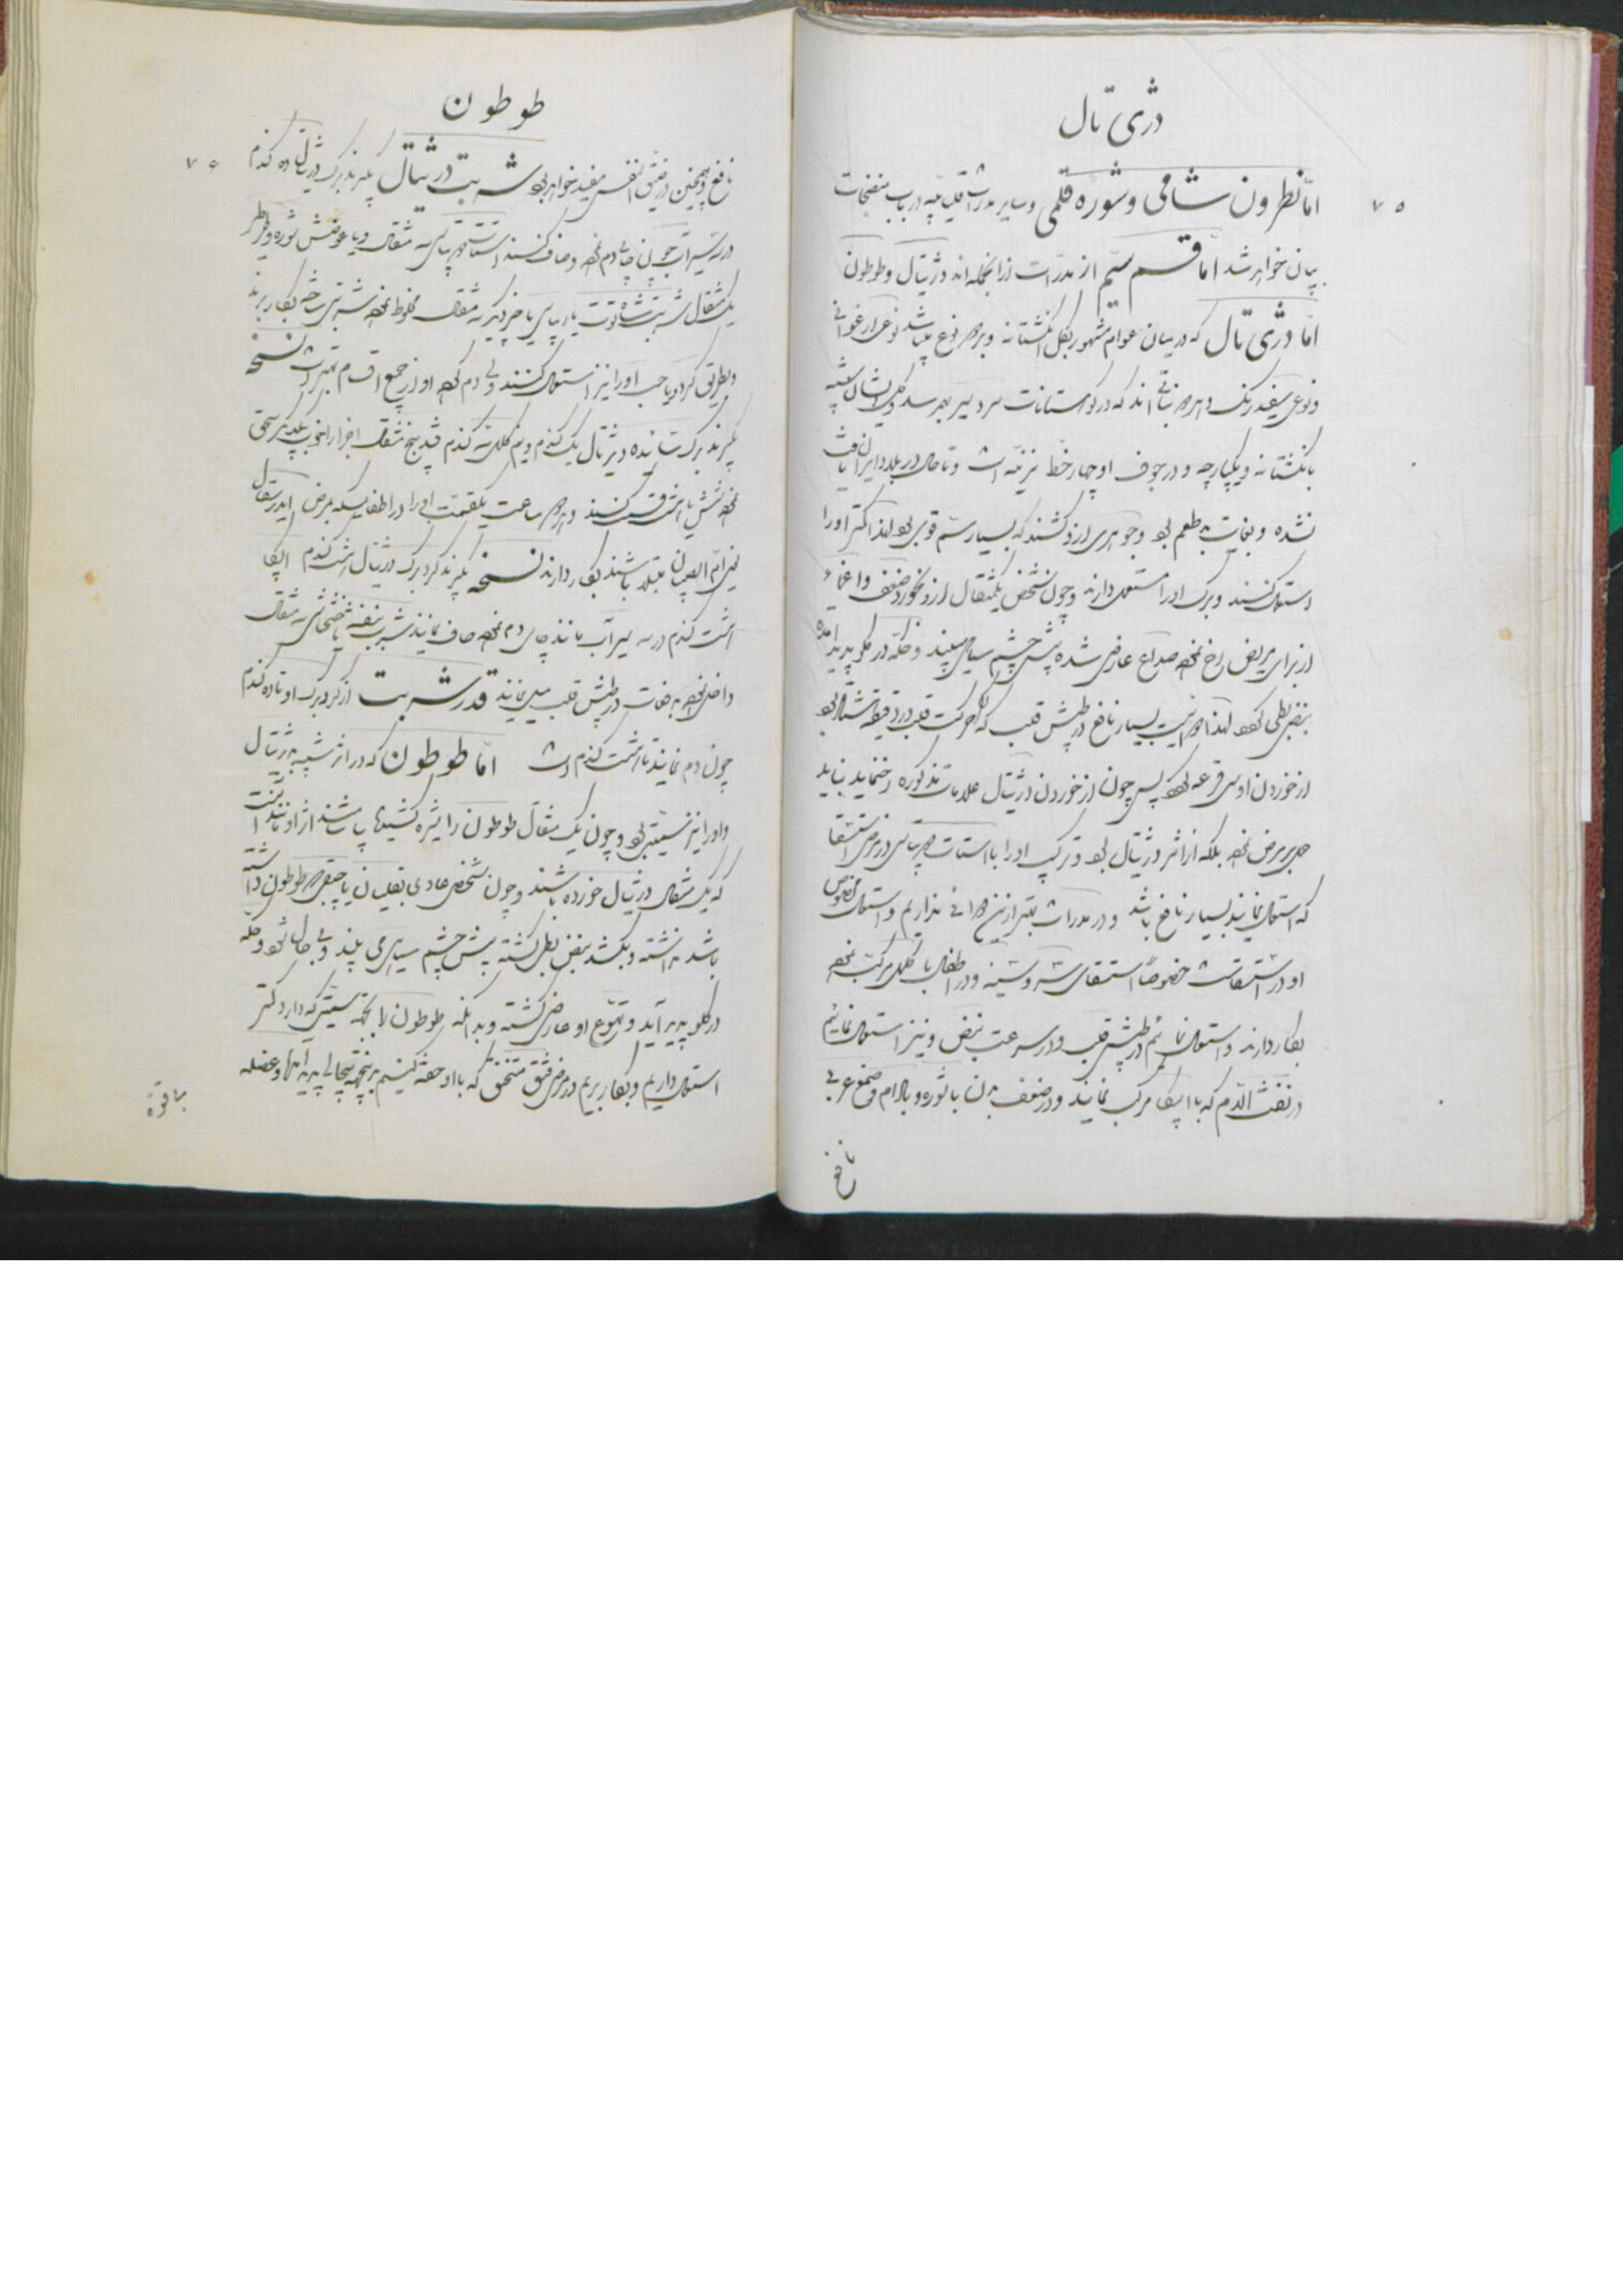 دژی تال
۷۵
اما نطرون شامی و شوره قلمی و سایر مدرات قلیائیه در باب منضجات
بیان خواهد شد اما قسم سیّم از مدرات از آنجمله اند دژیتال و طوطون
اما دژی تال که در میان عوام مشهور بگل انگشتانه و بر دو نوع میباشد نوعی ارغوانی
و نوعی سفید رنگ و هر دو نباتی اند که در کوهستانات سردسیر بهم رسد و گل ایشان شبیه
بانگشتانه و یکپارچه و در جوف او چهار خط نیز نیمه است و تا حال در بلاد ایران یافت
نشده و بغایت بدطعم بود و جوهری از او کشند که بسیار سم قوی بود لهذا کمتر او را
استعمال کنند و برگ او را مستعمل دارند و چون شخص یکمثقال از او بخورد ضعف و اغماء
از برای مریض رخ نموده صداع عارض شده پیش چشم سیاهی بیند و خله در گلو پدید آمده
نبض بطی گردد لهذا دوائیست بسیار نافع در طپش قلب که اگر حرکت قلب در دقیقه هشتاد بود
از خوردن او سی قرعه گردد پس چون از خوردن دژیتال علامات مذکوره رخنماید نباید
حمل بر مرض نمود بلکه از اثر دژیتال بود و ترکیب او را با استات دو پتاس در مرض استسقا
که استعمال نمایند بسیار نافع باشد و در مدرات بهتر از این دوائی نداریم و استعمال مخصوص
او در استسقا است خصوصاً استسقای سر و سینه و در اطفال با کلمل مرکب نموده
بکار دارند و استعمال نمائیم در طپش قلب و در سرعت نبض و نیز استعمال نمائیم
در نفث الدم که با اپیکا مرکب نمایند و در ضعف بدن با شوره و بالام و صمغ عربی
نافع
طوطون
۷۵
نافع و همچنین در ضیق النفس مفید خواهد بود شربت دژیتال بگیرند برگ دژیتال ده گندم
در سه سیر آب جوین چای دم نموده و صاف کنند استات دو پتاس سه مثقال و یا عوضش شوره و نطر
یک مثقال شربت شاه توت یا رب یا چیز دیگر سه مثقال مخلوط نموده شربتی ساخته بکار برند
و بطریق گرد و یا حب او را نیز استعمال کنند ولی دم کرده او از جمیع اقسام بهتر است نسخه
بگیرند برگ سائیده دیژتال یک گندم و نیم کلمل سه گندم قند پنج مثقال اجزا را خوب بیکدیگر سحق
نموده شش یا هشت قسمت کنند و هر دو ساعت یکقسمت او را در اطفالیکه بمرض ایدرسفال
یعنی ام الصبیان مبتلا باشند بکار دارند نسخه بگیرند گرد برگ دژیتال هشت گندم اپیکا
هشت گندم در سه سیر آب مانند چای دم نموده صاف نمایند شربت بنفشه یا خشخاش سه مثقال
داخل نموده بدفعات در طپش قلب میل نمایند قدر شربت از گرد برگ او تا ده گندم
چون دم نمایند تا هشت گندم است اما طوطون که در اثر شبیه بدژیتال
و او را نیز سمیّتی بود و چون یک مثقال طوطون را شیره کشیده بیاشامند اثر او مانند آنست
که یک مثقال دژیتال خورده باشند و چون شخص عادی بقلیان یا چپق و طوطون داشته
باشد نداشته و بکشد نبض بطی گشته پیش چشم سیاهی می بیند و بی حال شود و خله
در گلو پدید آید و تهوع او عارض گشته و بدانکه طوطون را بجهة سمیّتی که دارد کمتر
استعمال داریم و بکار بریم در مرض فتق مختنق که با او حقنه کنیم بجهة
بافوة